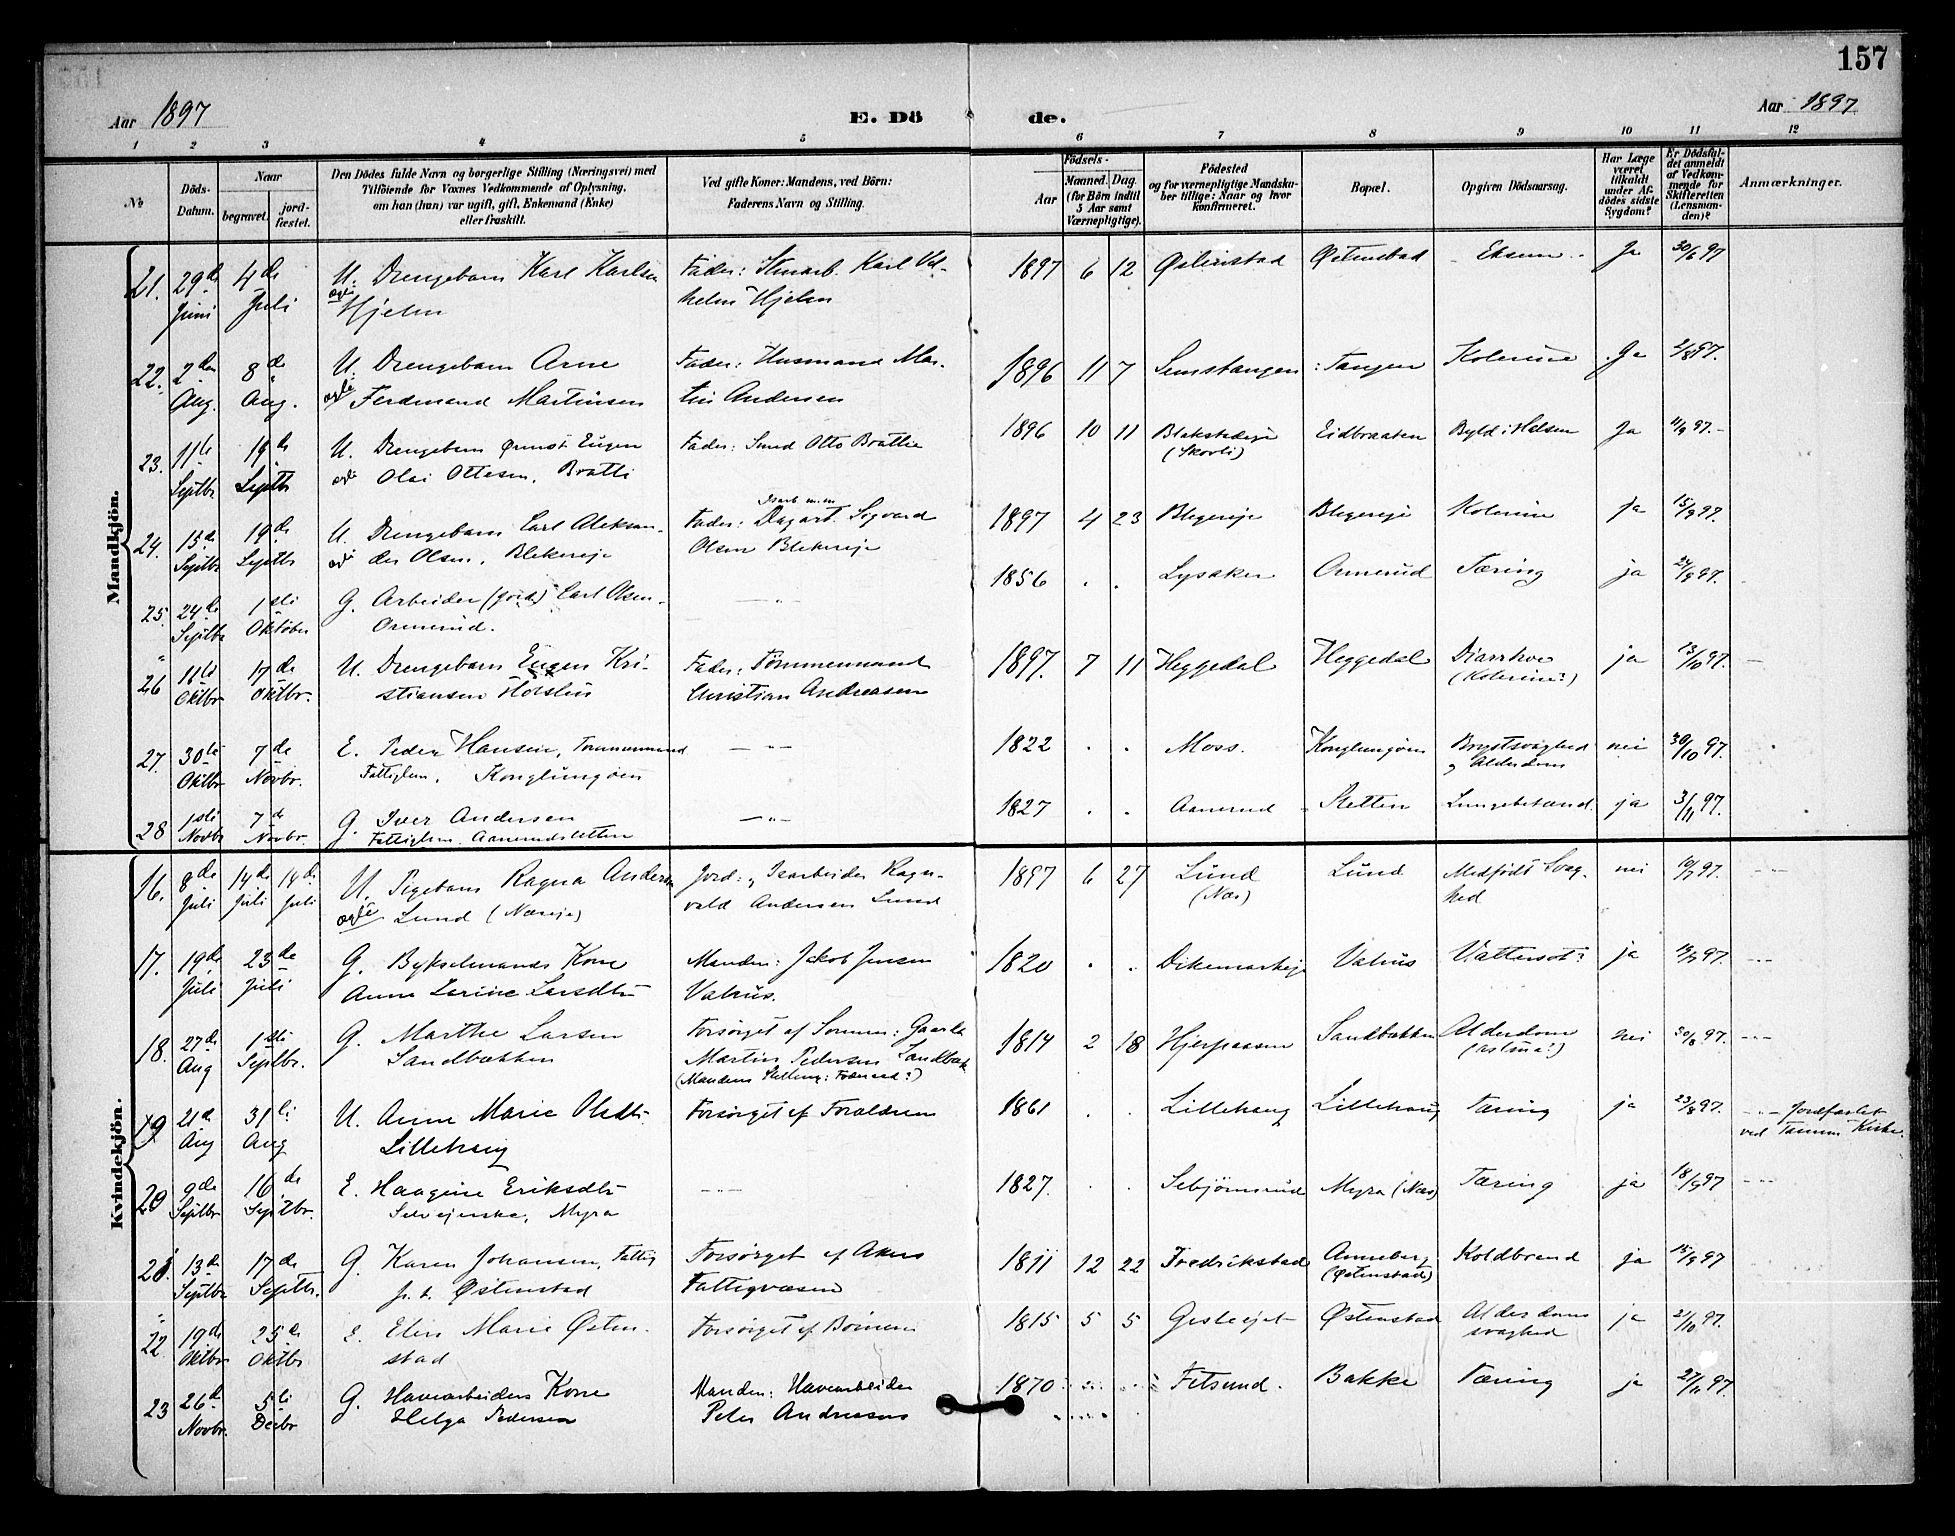 157
Aar 1897
E. Dö de.
Aar 1897
1 2 3 4 5 6 7 8 9 10 11 12
No
Döds-Datum.
Naar
begravet.
jord-fæstet.
Den Dödes fulde Navn og borgerlige Stilling (Næringsvei) med
Tilföiende for Voxnes Vedkommende af Oplysning,
om han (hun) var ugift, gift, Enkemand (Enke)
eller fraskilt.
Ved gifte Koner: Mandens, ved Börn:
Faderens Navn og Stilling.
Födsels-
Aar
Maaned. Dag.
(for Börn indtil
5 Aar samt
Værnepligtige).
Födested
og for værnepligtige Mandska-
ber tillige: Naar og hvor
konfirmeret.
Bopæl.
Opgiven Dödsaarsag.
Har Læge
været
tilkaldt
under Af-
dödes sidste
Sygdom?
Er Dödsfal-
det anmeldt
af Vedkom-
mende for
Skifteretten
(Lensman-
den)?
Anmærkninger.
Mandkjön.
21. 29de 4de U. Drengebarn Karl Karlsen Fader: Karl Vil- 1897 6 12 Østenstad Østenstad Eksem Ja 30/6 97
Juni Juli Hjelm helm Hjelm
22. 2den 8de U. Drengebarn Arne Fader: Husmand Mar- 1896 11 7 Semstangen Tangen Kolerine Ja 2/8 97.
Aug. Aug. Ferdinand Martinsen tin Andersen
23. 11te 19de U. Drengebarn Ernst Eugen Fader: Smed Otto Brattlie 1896 10 11 Blakstadeje Eidbraaten Byld i Halsen Ja 11/9 97.
Septbr Septbr Olai Ottesen, Bratli (Skovli)
24. 15de 19de U. Drengebarn Carl Aleksan- Fader: Dagarb. Sigvard 1897 4 23 Blegereje Blegereje Kolerine Ja 15/9 97.
Septbr Septbr der Olsen, Blekereje Olsen Blekereje
25. 24de 1ste G. Arbeider (jord) Carl Olsen 1856 Lysaker Ormerud Tæring ja 24/9 97.
Septbr Oktober Ormerud.
26 11te 17de U. Drengebarn Eugen Kri- Fader: Tømmermand 1897. 7 11 Heggedal Heggedal Diarrhoe ja 13/10 97.
Oktbr Oktbr. stiansen Christian Andreasen (Kolerine?)
27. 30te 7de E. Peder Hansen, Tømmermand 1822 Moss. Konglungøen Brystsvaghed nei 30/10 97.
Oktbr Novbr. Fattiglem, Konglungøen og Alderdom
28 1ste 7de G. Iver Andersen 1827 Aanerud Sletten Lungebetænd. ja 3/11 97.
Novbr Novbr. Fattiglem. Aanerudsletten
Kvindekjön.
16. 8de 14de 14de U. Pigebarn Ragna Andersen Jord- og Isarbeider Ragn- 1897 6 27 Lund Lund Medfødt Svag- nei 10/7 97.
Juli Juli Juli Lund (Næseje) vald Andersen Lund (Næs) hed
17. 19de 23de G. Bykselmands Kone Manden: Jakob Jensen 1820 Dikemarkeje Valhus Vattersot? ja 19/7 97.
Juli Juli Anne Larine Larsdtr Valhus.
18. 27de 1ste G. Marthe Larsen Forsørget af Sønnen: Gaardb. 1814 2 18 Hjerpaasen Sandbækken Alderdom nei 30/8 97.
Aug Septbr. Sandbækken Martin Pedersen Sandbæk (astma?)
(Mandens Stilling: Føderaad?)
19 21de 31te U. Anne Marie Olsdtr Forsørget af Forældrene 1861 Lillehaug Lillehaug Tæring ja 23/8 97. Jordfæstet
Aug Aug Lillehaug ved Tanum Kirke.
20 9de 16de E. Haagine Eriksdtr 1827. Sebjørnsrud Myra (Næs) Tæring ja 18/9 97
Septbr Septbr. Selvejerske, Myra
21. 13de 17de G. Karen Johansen, Fattig Forsørget af Akers 1811 12 22 Fredrikstad Anneberg Koldbrand ja 15/9 97
Septbr Septbr. p. t. Østenstad Fattigvæsen (Østenstad)
22 19de 25de E. Elen Marie Østen- Forsørget af Børnene 1815 5 5 Østenstad Alderdoms- ja 21/10 97.
Oktbr Oktbr stad svaghed
23 26de 5te G. Havearbeiders Kone Manden: Havearbeider 1870 Fetsund. Bakke Tæring ja 27/11 97.
Novbr. Decbr Helga Pedersen Peter Andreasen